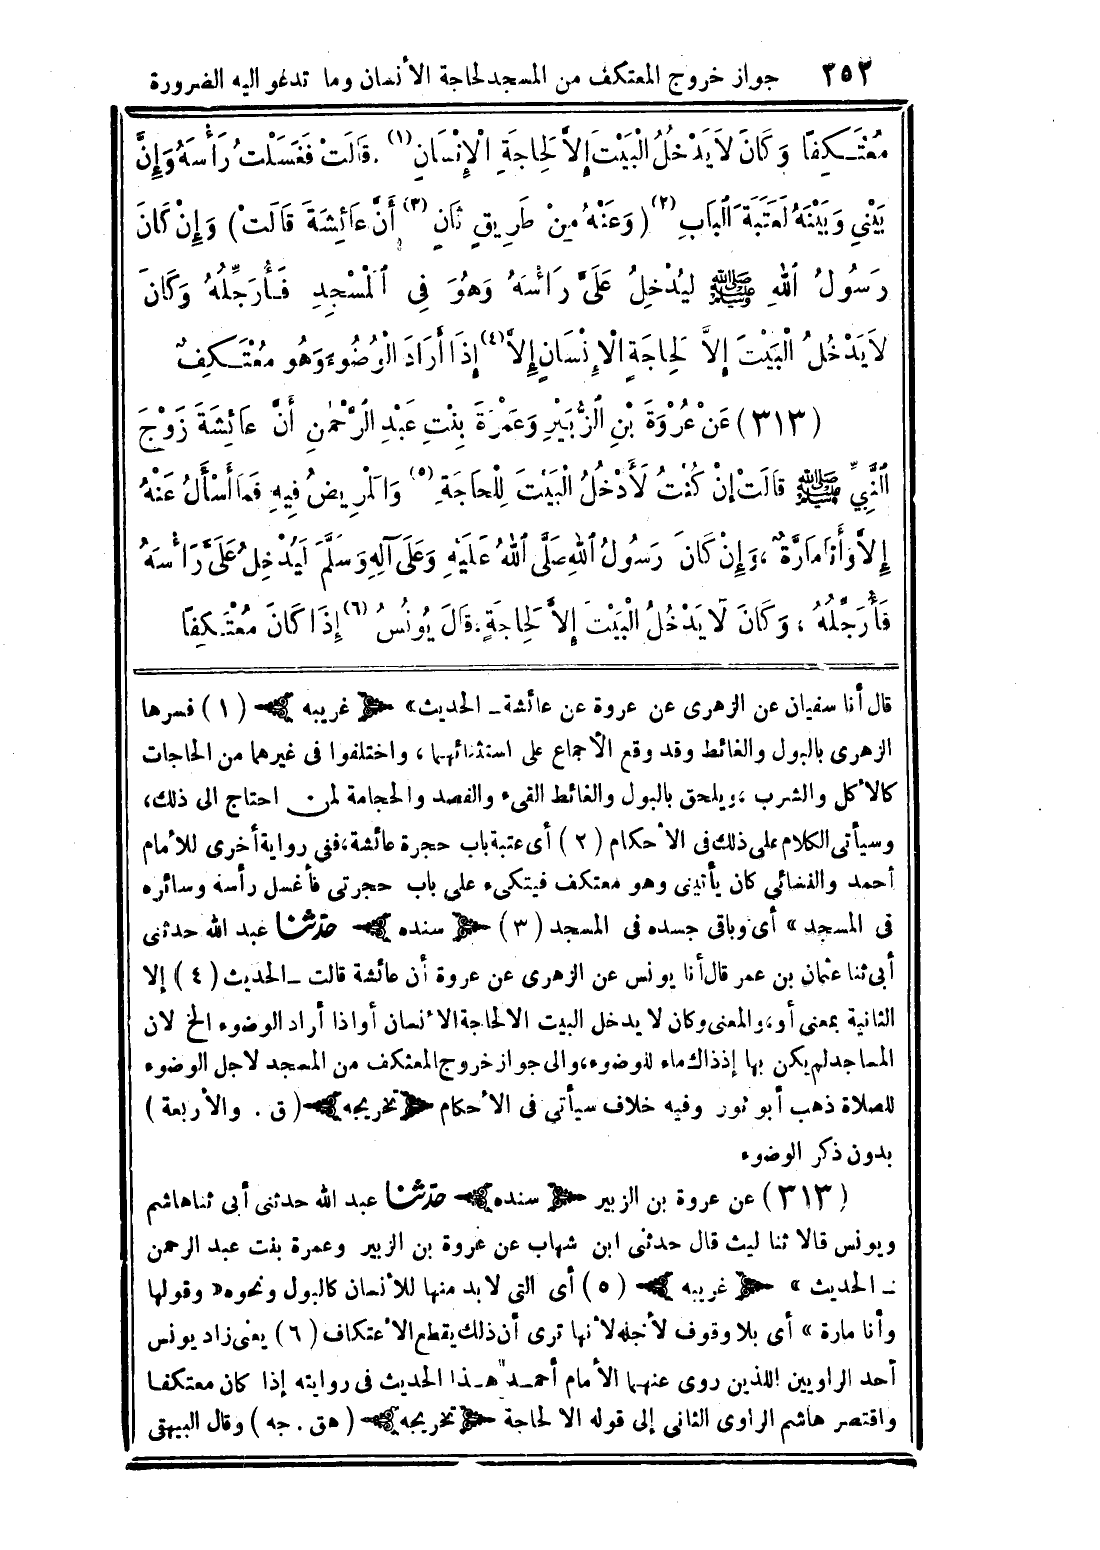 ٢٥٢ جواز خروج المعتكف من المسجد لحاجة الأنسان وما تدعو اليه الضرورة
مُعْتَكِفًا وَكَانَ لاَ يَدْخُلُ الْبَيْتَ إِلاَّ لِحَاجَةِ الْإِنْسَانِ (١) . قَالَتْ فَغَسَلْتُ رَأْسَهُ وَإِنَّ
بَيْنِي وَبَيْنَهُ لَعَتَبَةَ الْبَابِ (٢) (وَعَنْهُ مِنْ طَرِيقٍ ثَانٍ (٣) أَنَّ عَائِشَةَ قَالَتْ) وَإِنْ كَانَ
رَسُولُ اللهِ ﷺ لَيُدْخِلُ عَلَىَّ رَأْسَهُ وَهُوَ فِي الْمَسْجِدِ فَأُرَجِّلُهُ وَكَانَ
لاَ يَدْخُلُ الْبَيْتَ إِلاَّ لِحَاجَةِ الْإِنْسَانِ إِلاَّ (٤) إِذَا أَرَادَ الْوُضُوءَ وَهُو مُعْتَكِفٌ
(٣١٣) عَنْ عُرْوَةَ بْنِ الزُّبَيْرِ وَعَمْرَةَ بِنْتِ عَبْدِ الرَّحْمٰنِ أَنَّ عَائِشَةَ زَوْجَ
النَّبِيِّ ﷺ قَالَتْ إِنْ كُنْتُ لَأَدْخُلُ الْبَيْتَ لِلْحَاجَةِ (٥) وَالْمَرِيضُ فِيهِ فَمَا أَسْأَلُ عَنْهُ
إِلاَّ وَأَنَا مَارَّةٌ ، وَإِنْ كَانَ رَسُولُ اللهِ صَلَّى اللهُ عَلَيْهِ وَعَلَى آلِهِ وَسَلَّمَ لَيُدْخِلُ عَلَىَّ رَأْسَهُ
فَأُرَجِّلُهُ ، وَكَانَ لَا يَدْخُلُ الْبَيْتَ إِلاَّ لِحَاجَةٍ . قَالَ يُونُسُ (٦) إِذَا كَانَ مُعْتَكِفًا
قال أنا سفيان عن الزهرى عن عروة عن عائشة ــ الحديث» ﴿ غريبه ﴾ (١) فسرها
الزهرى بالبول والغائط وقد وقع الأجماع على استثنائهما ، واختلفوا فى غيرهما من الحاجات
كالأكل والشرب ، ويلحق بالبول والغائط القىء والفصد والحجامة لمن احتاج الى ذلك،
وسيأتى الكلام على ذلك فى الأحكام (٢) أى عتبة باب حجرة عائشة، ففى رواية أخرى للأمام
أحمد والنسائى كان يأتينى وهو معتكف فيتكىء على باب حجرتى فأغسل رأسه وسائره
فى المسجد » أى وباقى جسده فى المسجد (٣) ﴿ سنده ﴾ حدثنا عبد الله حدثنى
أبى ثنا عثمان بن عمر قال أنا يونس عن الزهرى عن عروة أن عائشة قالت ــ الحديث (٤) إلا
الثانية بمعنى أو، والمعنى وكان لا يدخل البيت الا لحاجة الأنسان أو اذا أراد الوضوء الخ لان
المساجد لم يكن بها إذ ذاك ماء للوضوء، والى جواز خروج المعتكف من المسجد لاجل الوضوء
للصلاة ذهب أبو ثور وفيه خلاف سيأتى فى الأحكام ﴿ تخريجه ﴾ (ق . والأربعة)
بدون ذكر الوضوء
(٣١٣) عن عروة بن الزبير ﴿ سنده ﴾ حدثنا عبد الله حدثنى أبى ثنا هاشم
ويونس قالا ثنا ليث قال حدثنى ابن شهاب عن عروة بن الزبير وعمرة بنت عبد الرحمن
ــ الحديث » ﴿ غريبه ﴾ (٥) أى التى لا بد منها للأنسان كالبول ونحوه « وقولها
وأنا مارة » أى بلا وقوف لأجله لأنها ترى أن ذلك يقطع الاعتكاف (٦) يعنى زاد يونس
أحد الراويين اللذين روى عنهما الأمام أحمد هذا الحديث فى روايته إذا كان معتكفا
واقتصر هاشم الراوى الثانى إلى قوله الا لحاجة ﴿ تخريجه ﴾ (هق . جه) وقال البيهقى